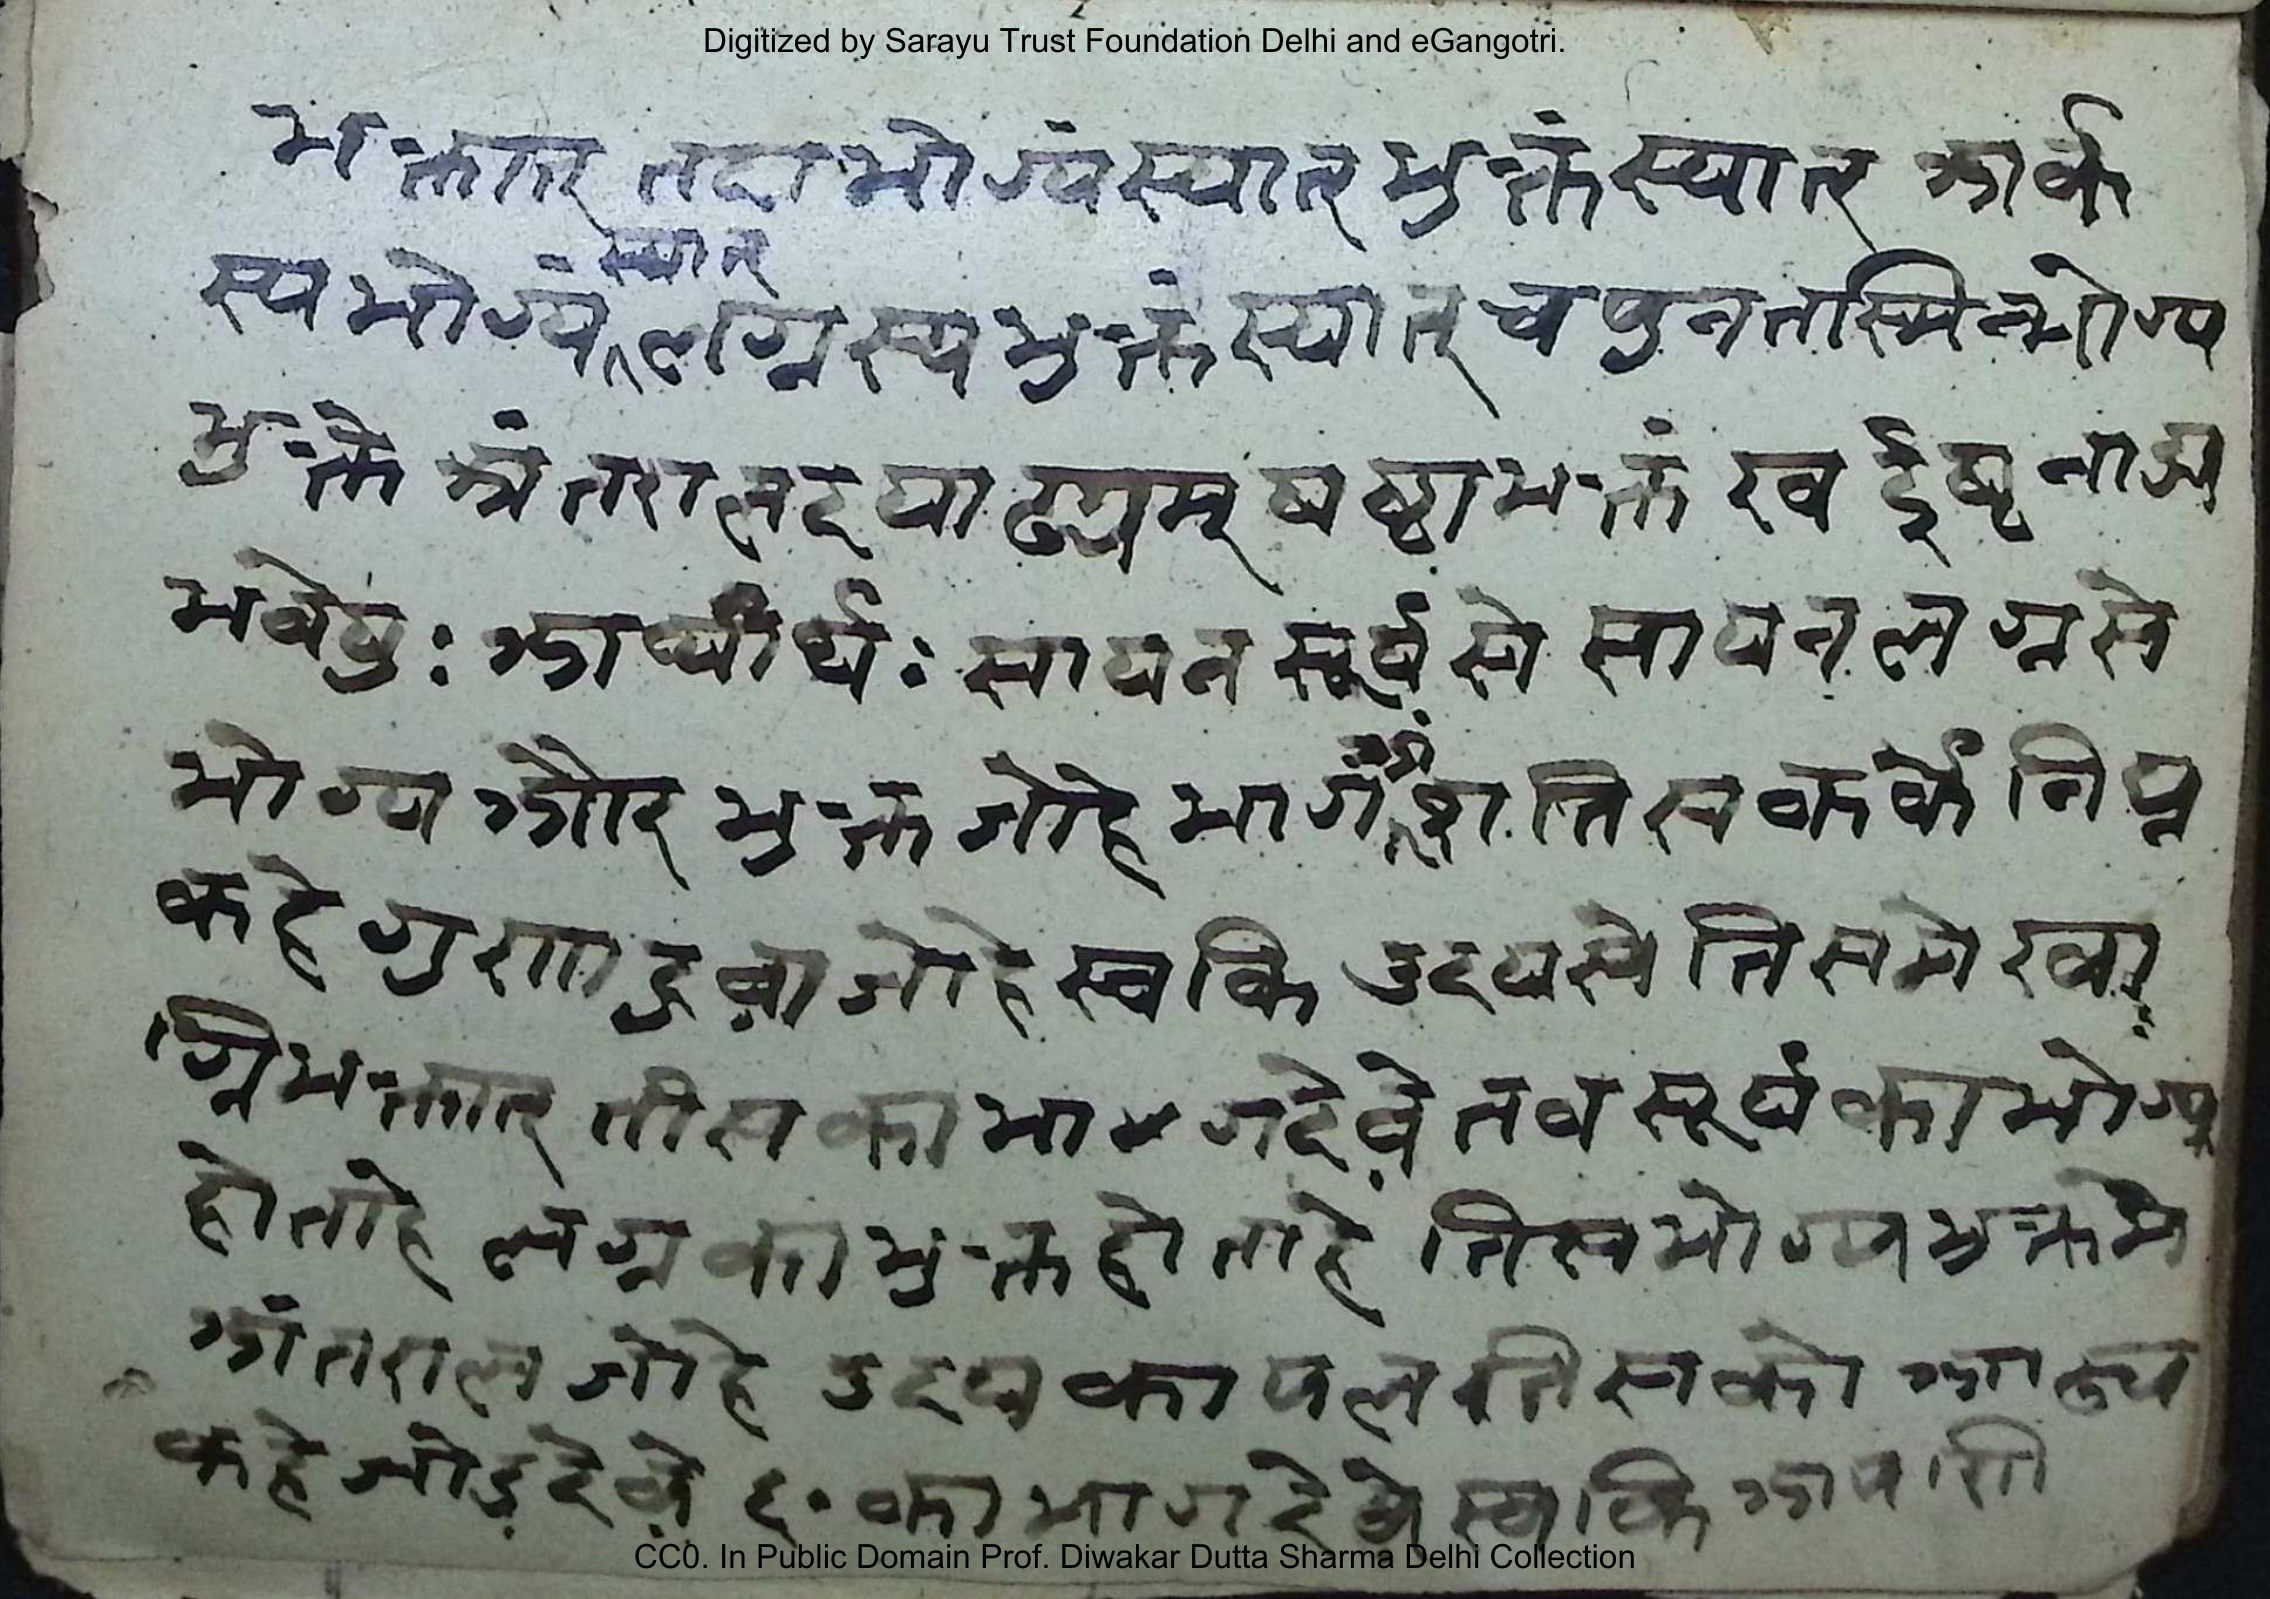 Digitized by Sarayu Trust Foundation Delhi and eGangotri.
भक्तात् तदा भोग्यं स्यात् भुक्तं स्यात् अर्क
स्य भोग्यं स्यात् लग्नस्य भुक्तं स्यात् च पुन तस्मिन्भोग्य
भुक्ते अंतरालदयाढ्यम् षष्ठाभक्तं स्व ईष्ट नाड्य
भवेयुः अस्यार्थः सायन सूर्य से सायन लग्न से
भोग्य और भुक्त जोहे भाग तिस कर्के निघ्न
कहे गुणा हुवा जोहे स्वकि उदयसे तिसमे खा
ग्निभक्तात् तीस का भाग देवे तव सूर्य का भोग्य
होताहे लग्न का भुक्त होताहे तिस भोग्य भुक्तमे
अंतराल जोहे उदय का पल तिसको आढ्य
कहे जोड़ देवे ६० का भाग देवे स्वकि अपणि
CC0. In Public Domain Prof. Diwakar Dutta Sharma Delhi Collection